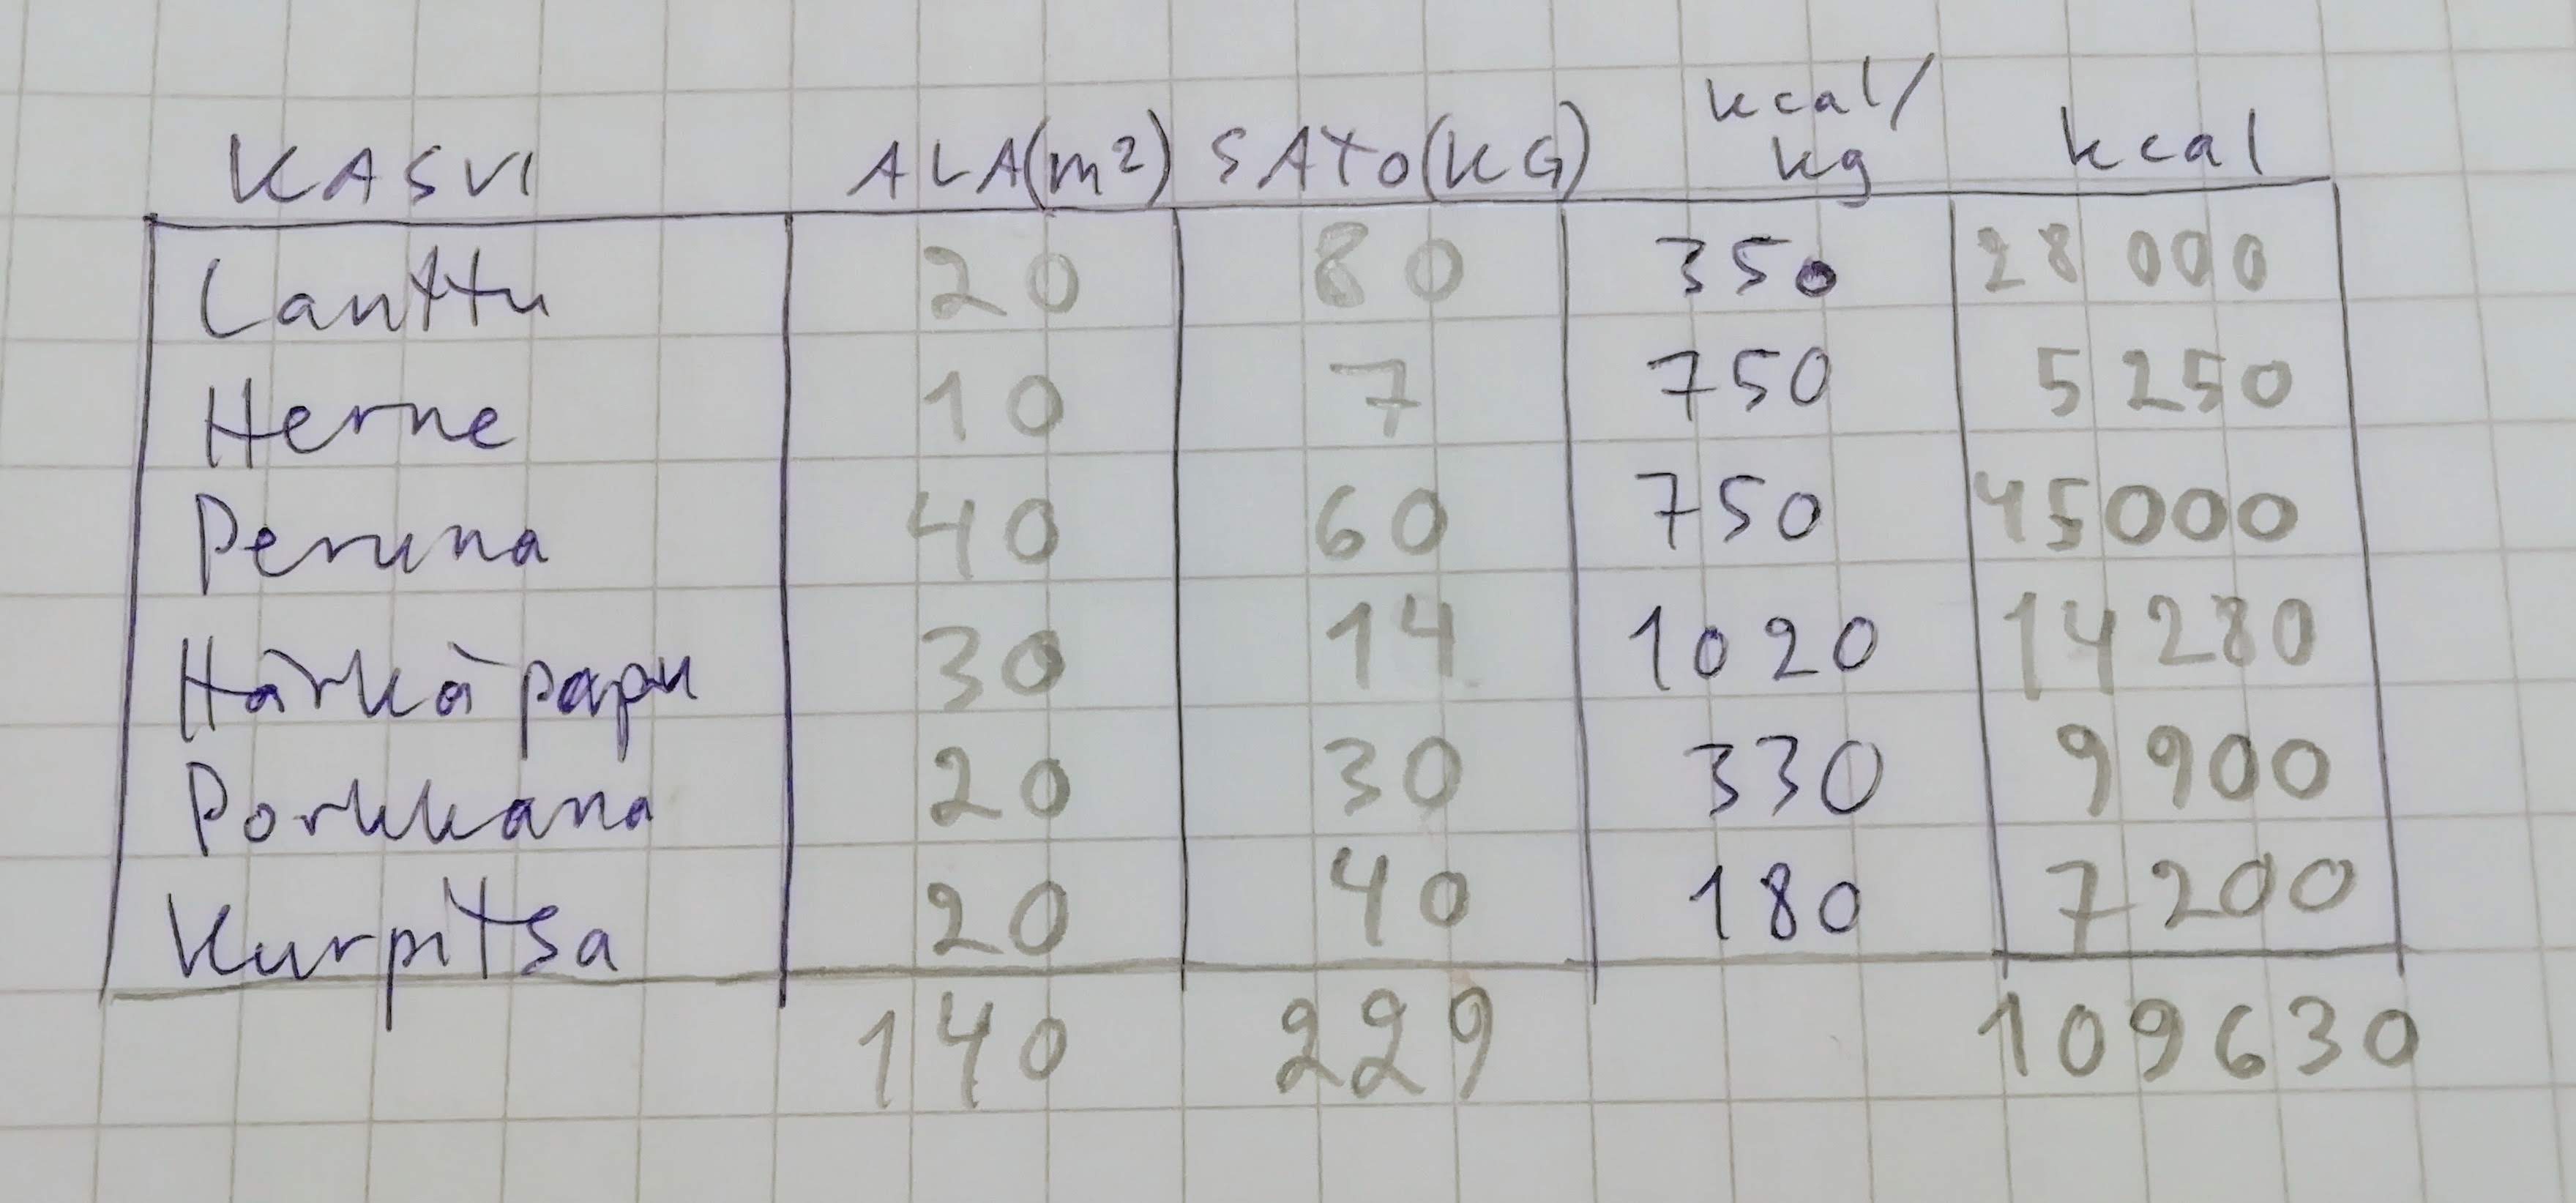 KASVI ALA(m²) SATO(KG) kcal/kg kcal
Lanttu 20 80 350 28 000
Herne 10 7 750 5 250
Peruna 40 60 750 45000
Härkäpapu 30 14 1020 14 280
Porkkana 20 30 330 9 900
Kurpitsa 20 40 180 7 200
140 229 109630